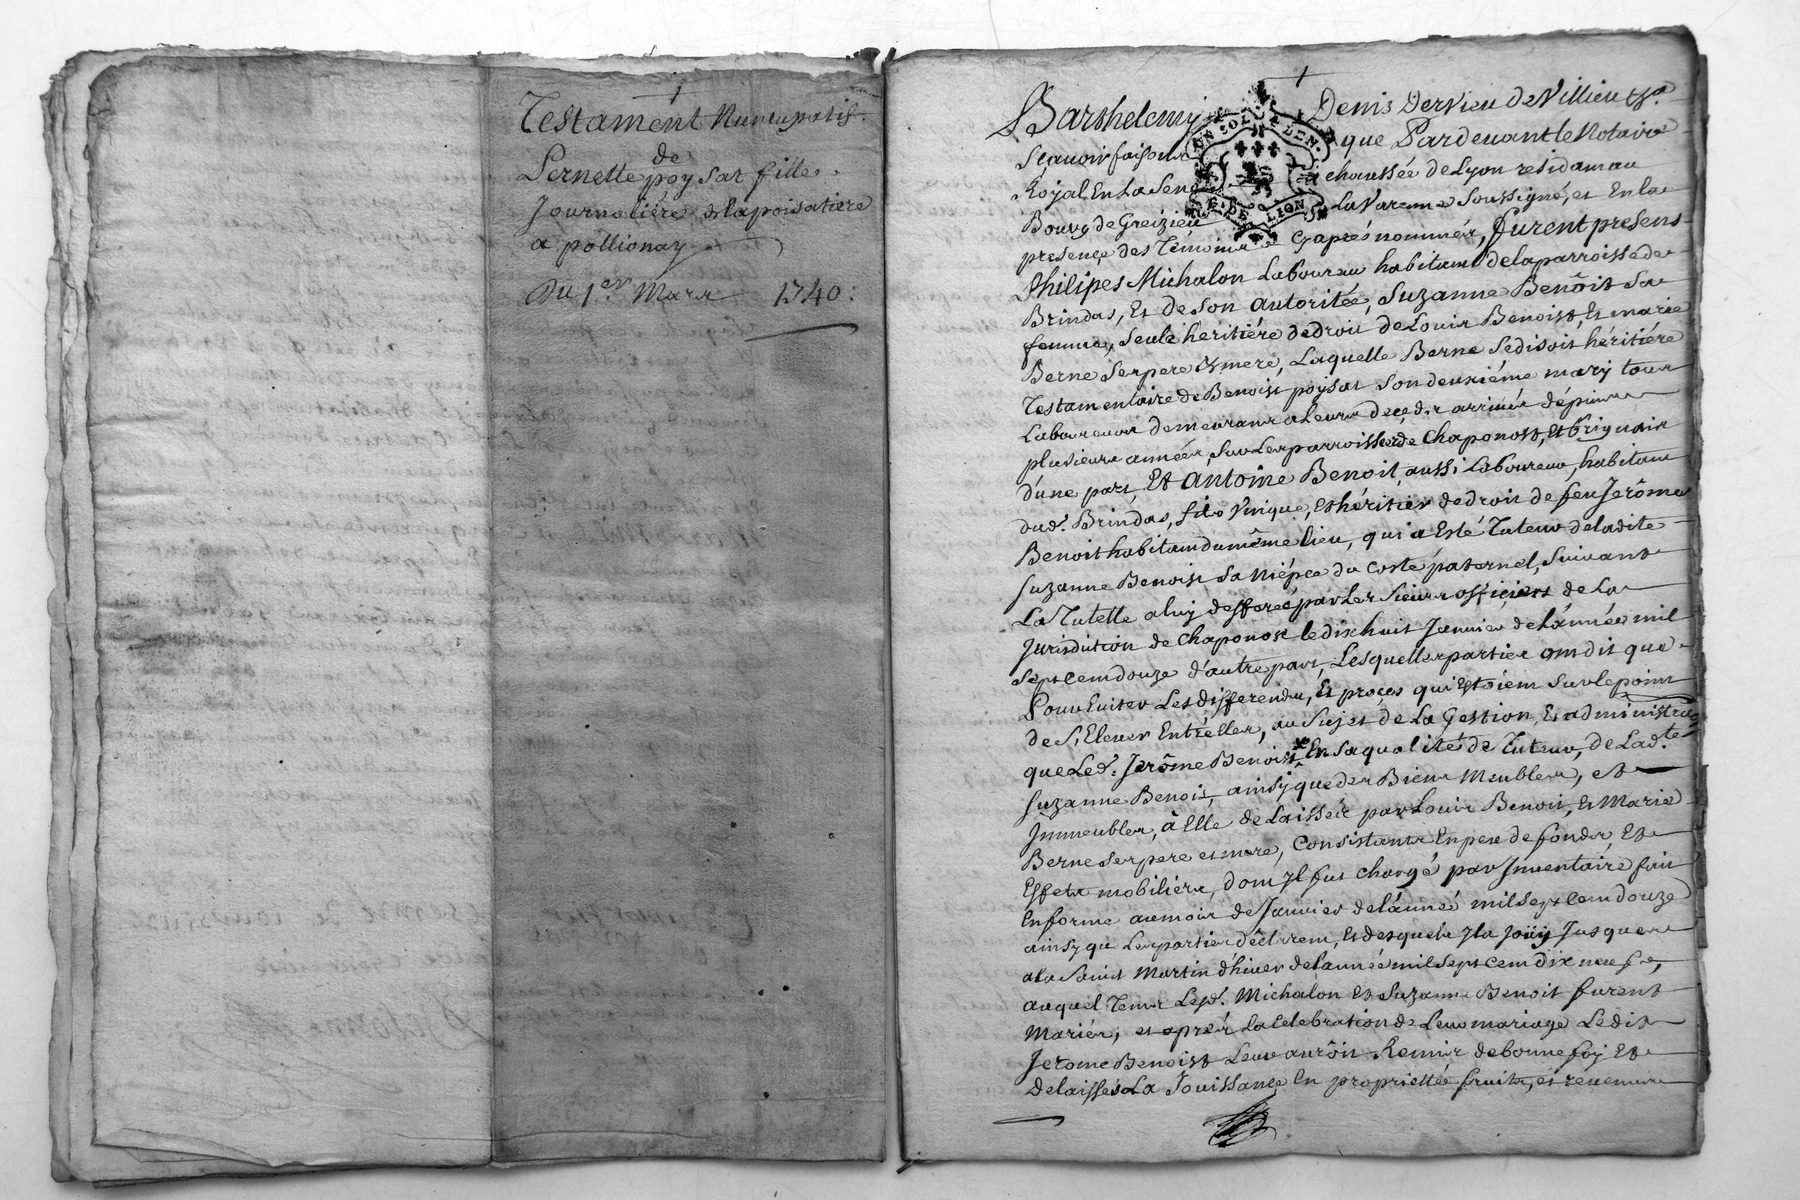 Testament Nuncupatif.
de
Pernette poysat fille
Journaliére de la poisatiere
a pollionay
Du 1er. Mars 1740:
Barthelemy Denis Dervieu de Villieu
Sçauoir faisons que Pardeuant le Notaire
Royal En la Sene chaussée de Lyon residam au
GEN SOL LION.
DE LION
Bourg de Greizieu la Varenne Soussigné, et En la
presence des Témoins Cy apres nommés, furent presens
Philipes Michalon Laboureur habitant de la parroisse de
Brindas, Et de Son autoritée, Suzanne Benoit Sa
femme, Seule héritiére de droit de Louis Benoist, Et marie
Berne Ses pere & mere, Laquelle Berne Se disoit héritiére
Testamentaire de Benoist poysat Son deuxiéme mary tous
Laboureurs demeurans a Leurs deçeds arrivés dépuis
plusieurs années, Sur Les parroisses de Chaponost, et brignais
d'une part, Et antoine Benoit, aussi Laboureur, habitant
dud. Brindas, fils Vnique, Et héritier de droit de feu Jerôme
Benoit habitant du même lieu, qui a Esté Tuteur de ladite
Suzanne Benoist Sa Niépce du Costé paternel, Suivant
La Tutelle a luy defferée par Les Sieurs officiers de La
Jurisdiction de Chaponost le dix huit Janvier de L'année mil
Sept Cem douze d'autre part, Lesquelles parties om dit que
Pour Euiter Les differends, Et procès qui Estoiem Sur le point
de S'Eleuer Entr'elles, au Sujet de La Gestion, Et administra
que Led. Jerôme Benoist En Sa qualité de Tuteur, de Lad.te
Suzanne Benoit, ainsy que des Biens Meubles, et
Jmmeubles, à Elle delaissés par Louis Benoit, Et Marie
Berne Ses pere et mere, Consistants En peu de fonds, Et
Effets mobiliers, dom Jl fut chargé par Jnuentaire fait
En forme au mois de Janvier de l'année mil Sept Cem douze
ainsy que Les parties déclarem, Et desquels Jl a Joüy Jusques
a la Saint Martin d'hiuer de l'année mil Sept Cem dix neufe,
auquel Tems Led. Michalon Et Suzanne Benoit furent
Mariés, et aprés La Celebration de Leur mariage Ledit
Jerome Benoist Leur auroit Remis de bonne foy Et
delaissés La Jouissance En proprietée fruits, et revenus